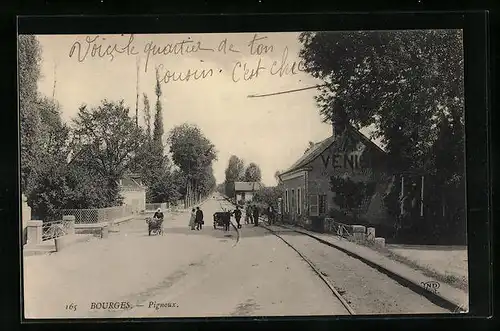 Voici le quartier de ton
cousin. C'est chic
A VENI
165 BOURGES. — Pigneux.
ND